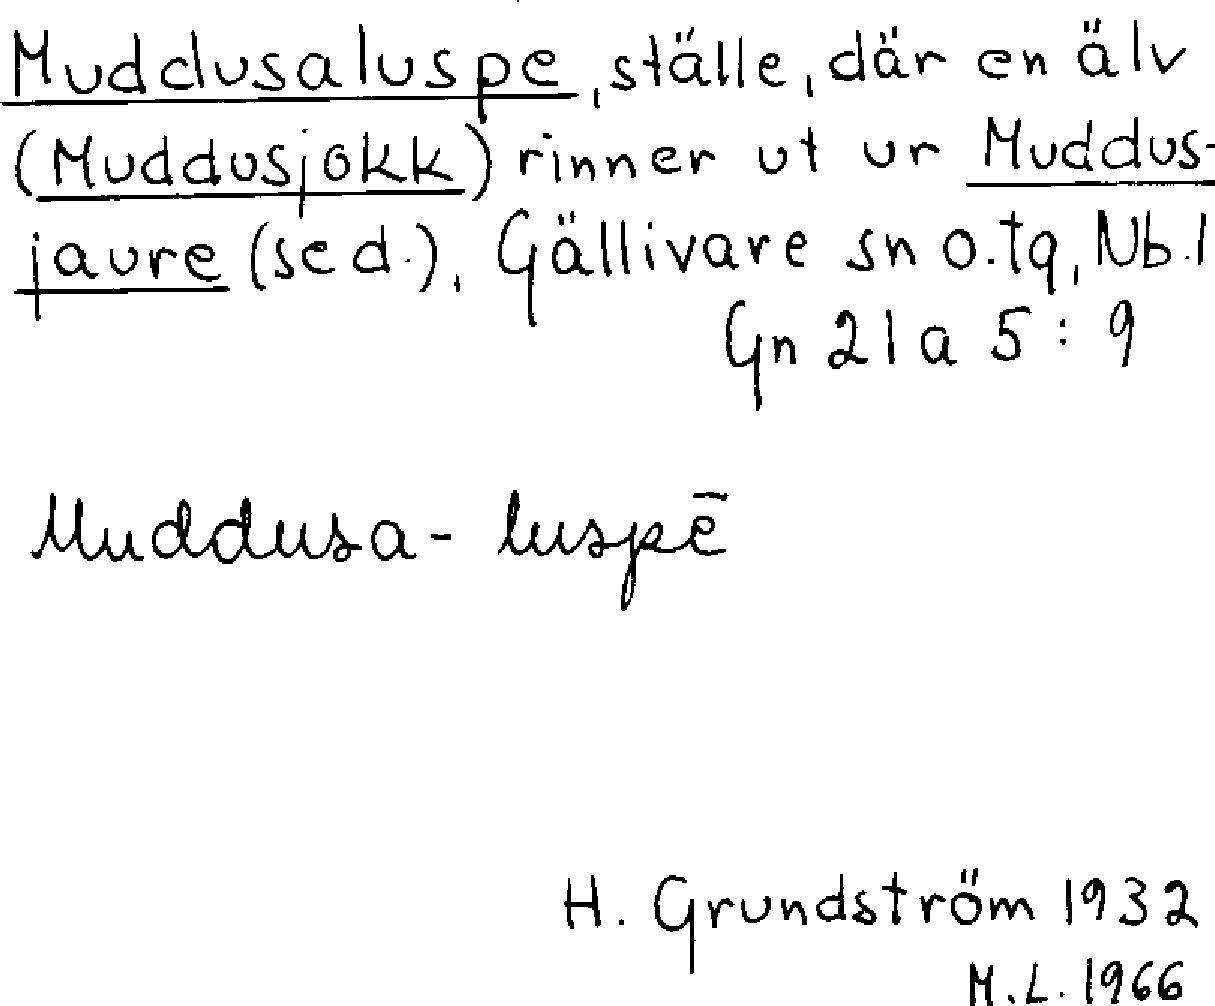 Muddusaluspe, ställe, där en älv
(Muddusjokk) rinner ut ur Muddus-
jaure (sed.), Gällivare sn o. tg, Nb. l
Gn 21 a 5 : 9
Muddusa- luspē
H. Grundström 1932
M.L. 1966